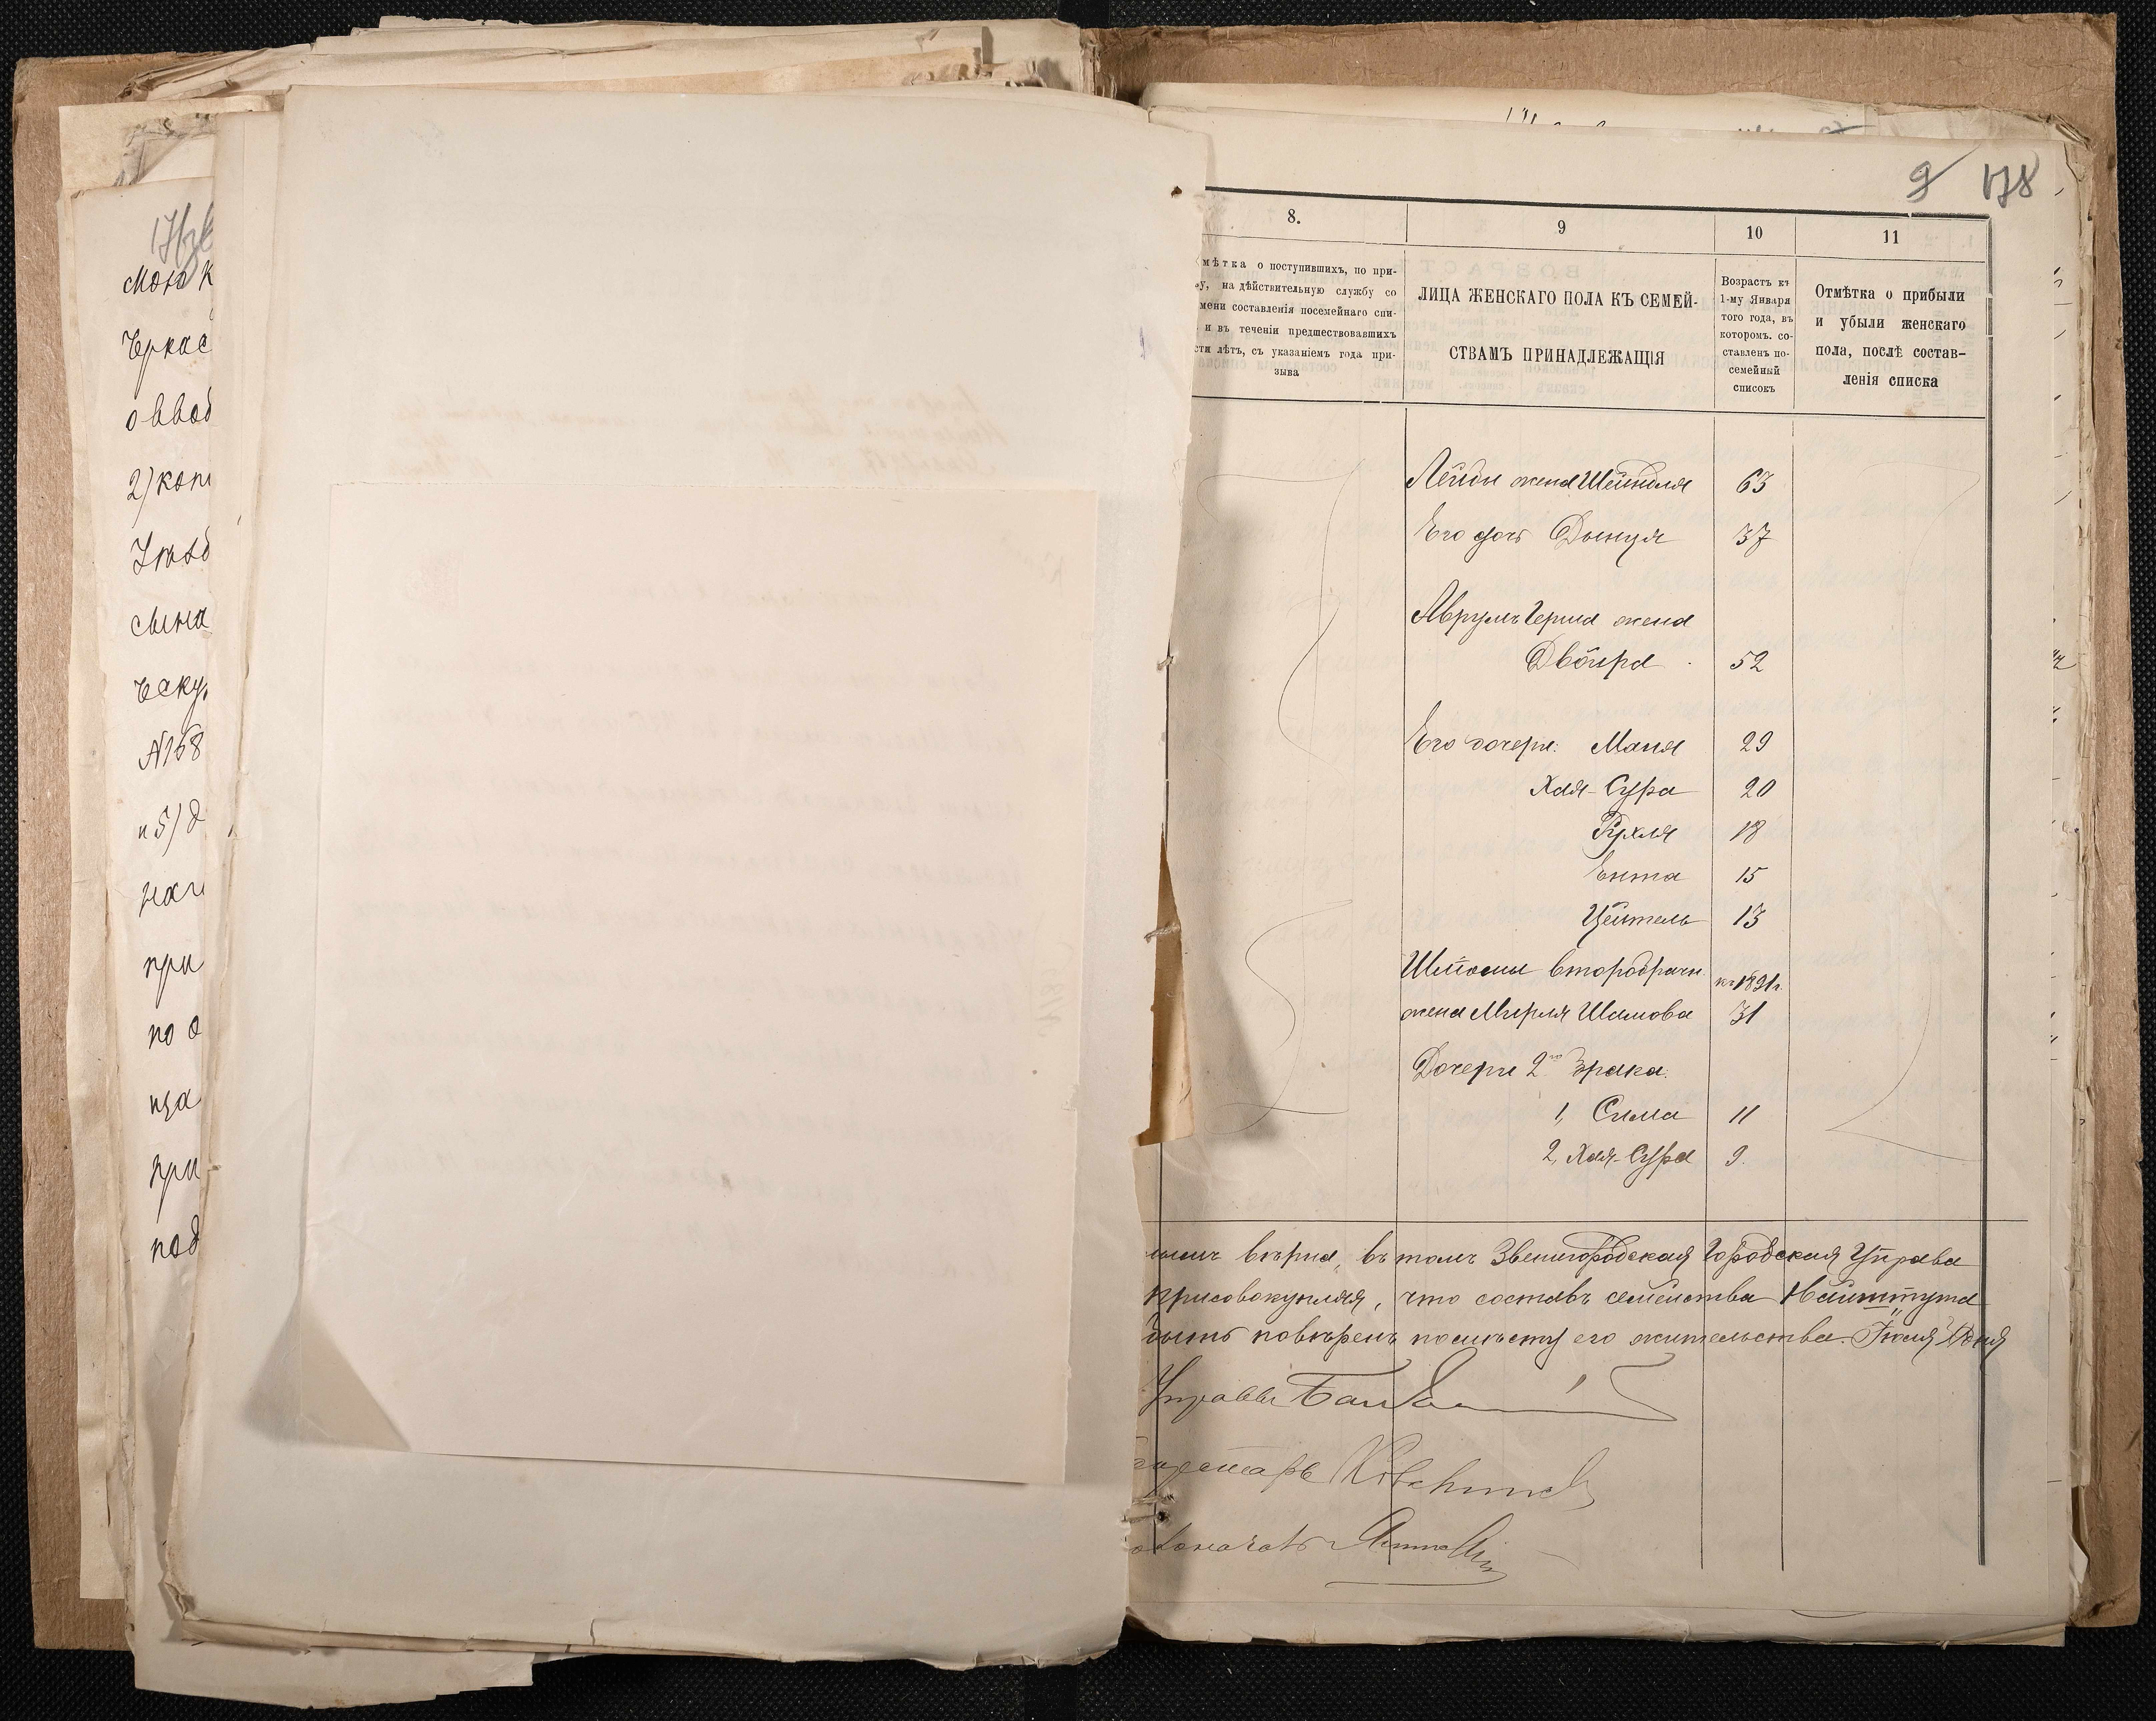 мою к
Черкас
о ввод
2) коп
сына
№168
и 5) д
при
по о
при
под
9 178
8.
9
10
11
мѣтка о поступившихъ, по при-
ву, на дѣйствительную службу со
мени составленія посемейнаго спи-
и въ теченіи предшествовавшихъ
сти лѣтъ, съ указаніемъ года при-
зыва
ЛИЦА ЖЕНСКАГО ПОЛА КЪ СЕМЕЙ-
СТВАМЪ ПРИНАДЛЕЖАЩІЯ
Возрастъ къ
1-му Января
того года, въ
которомъ. со-
ставленъ по-
семейный
списокъ
Отмѣтка о прибыли
и убыли женскаго
пола, послѣ состав-
ленія списка
Лейди жена Шейндля 63
Его дочь Двинця 37
Аврумъ Герша жена
Двойра 52
Его дочери: Маня 29
Хая-Сура 20
Рухля 18
Ента 15
Цейтель 13
Шліомы второбрачн. къ 1891 г.
жена Мирля Шамова 31
Дочери 2го брака:
1, Сима 11
2, Хая-Сура 9.
вѣрна, въ томъ Звенигородская Городская Управа
присовокупляя, что составъ семейства Найштута
быть повѣренъ по мѣсту его жительства. Іюня
Управы